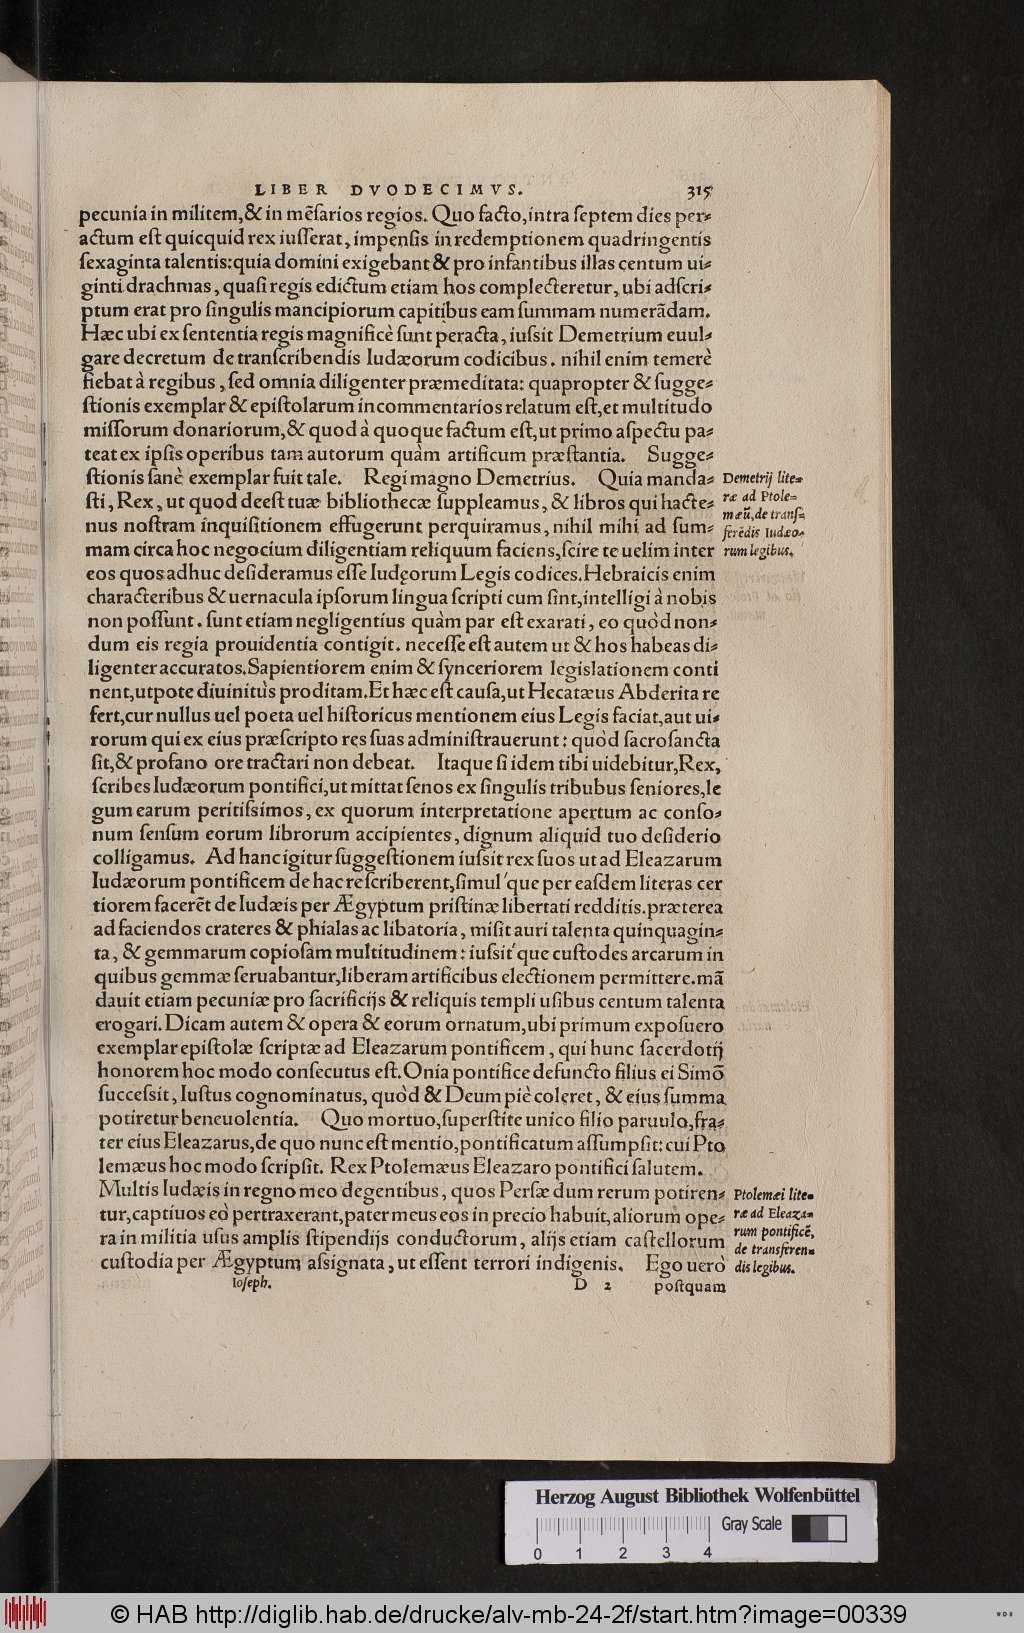 LIBER DVODECIMVS. 315
pecunia in militem,& in mēſarios regios. Quo facto,intra ſeptem dies per⸗
actum eſt quicquid rex iuſſerat, impenſis in redemptionem quadringentis
ſexaginta talentis:quia domini exigebant & pro infantibus illas centum ui⸗
ginti drachmas, quaſi regis edictum etiam hos complecteretur, ubi adſcri⸗
ptum erat pro ſingulis mancipiorum capitibus eam ſummam numerādam.
Hæc ubi ex ſententia regis magnificè ſunt peracta, iuſsit Demetrium euul⸗
gare decretum de tranſcribendis Iudæorum codicibus. nihil enim temerè
fiebat à regibus, ſed omnia diligenter præmeditata: quapropter & ſugge⸗
ſtionis exemplar & epiſtolarum in commentarios relatum eſt,et multitudo
miſſorum donariorum,& quod à quoque factum eſt,ut primo aſpectu pa⸗
teat ex ipſis operibus tam autorum quàm artificum præſtantia. Sugge⸗
ſtionis ſanè exemplar fuit tale. Regi magno Demetrius. Quia manda⸗
ſti, Rex, ut quod deeſt tuæ bibliothecæ ſuppleamus, & libros qui hacte⸗
nus noſtram inquiſitionem effugerunt perquiramus, nihil mihi ad ſum⸗
mam circa hoc negocium diligentiam reliquum faciens,ſcire te uelim inter
eos quos adhuc deſideramus eſſe Iudęorum Legis codices.Hebraicis enim
characteribus & uernacula ipſorum lingua ſcripti cum ſint,intelligi à nobis
non poſſunt. ſunt etiam negligentius quàm par eſt exarati, eo quòd non⸗
dum eis regia prouidentia contigit. neceſſe eſt autem ut & hos habeas di⸗
ligenter accuratos.Sapientiorem enim & ſynceriorem legislationem conti
nent,utpote diuinitùs proditam.Et hæc eſt cauſa,ut Hecatæus Abderita re
fert,cur nullus uel poeta uel hiſtoricus mentionem eius Legis faciat,aut ui⸗
rorum qui ex eius præſcripto res ſuas adminiſtrauerunt: quòd ſacroſancta
ſit,& profano ore tractari non debeat. Itaque ſi idem tibi uidebitur,Rex,
ſcribes Iudæorum pontifici,ut mittat ſenos ex ſingulis tribubus ſeniores,le
gum earum peritiſsimos, ex quorum interpretatione apertum ac conſo⸗
num ſenſum eorum librorum accipientes, dignum aliquid tuo deſiderio
colligamus. Ad hanc igitur ſuggeſtionem iuſsit rex ſuos ut ad Eleazarum
Iudæorum pontificem de hac re ſcriberent,ſimuĺque per eaſdem literas cer
tiorem facerēt de Iudæis per Ægyptum priſtinæ libertati redditis.præterea
ad faciendos crateres & phialas ac libatoria, miſit auri talenta quinquagin⸗
ta, & gemmarum copioſam multitudinem: iuſsit́que cuſtodes arcarum in
quibus gemmæ ſeruabantur,liberam artificibus electionem permittere.mā
dauit etiam pecuniæ pro ſacrificijs & reliquis templi uſibus centum talenta
erogari.Dicam autem & opera & eorum ornatum,ubi primum expoſuero
exemplar epiſtolæ ſcriptæ ad Eleazarum pontificem, qui hunc ſacerdotij
honorem hoc modo conſecutus eſt.Onia pontifice defuncto filius ei Simō
ſucceſsit, Iuſtus cognominatus, quòd & Deum piè coleret, & eius ſumma
potiretur beneuolentia. Quo mortuo,ſuperſtite unico filio paruulo,fra⸗
ter eius Eleazarus,de quo nunc eſt mentio,pontificatum aſſumpſit:cui Pto
lemæus hoc modo ſcripſit. Rex Ptolemæus Eleazaro pontifici ſalutem.
Multis Iudæis in regno meo degentibus, quos Perſæ dum rerum potiren⸗
tur,captiuos eò pertraxerant,pater meus eos in precio habuit,aliorum ope⸗
ra in militia uſus amplis ſtipendijs conductorum, alijs etiam caſtellorum
cuſtodia per Ægyptum aſsignata, ut eſſent terrori indigenis. Ego uerò
Ioſeph. D 2 poſtquam
Demetrij lite⸗
ræ ad Ptole⸗
mæū,de tranſ⸗
ferēdis Iudæo⸗
rum legibus.
Ptolemæi lite⸗
ræ ad Eleaza⸗
rum pontificē,
de tranſferen⸗
dis legibus.
Herzog August Bibliothek Wolfenbüttel
Gray Scale
0 1 2 3 4
© HAB http://diglib.hab.de/drucke/alv-mb-24-2f/start.htm?image=00339